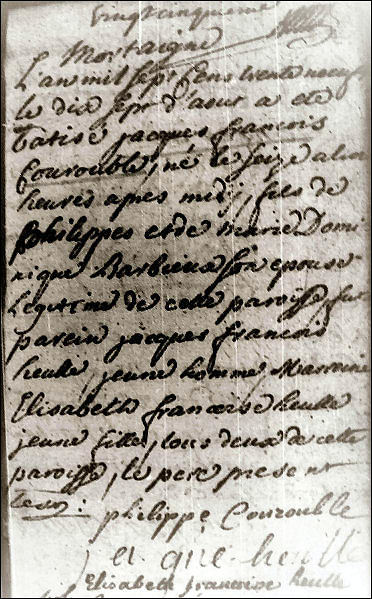 vingt cinquieme
Mortaigne
L'an mil sept cens trente neuf
le dix sept d'aust a eté
Batisé jacques francois
Couroublé, né le seize a
heures apres midj, fils de
philippes et de Marie Domi
nique Barbieux son epouse
Legitime de cette paroisse fut
parein jacques francois
heulle, jeune homme Marraine
Elisabeth francoise heulle
jeune fille, tous deux de cette
paroisse, le pere present
philippe Couroublle
heulle
Elisabeth francoise heulle